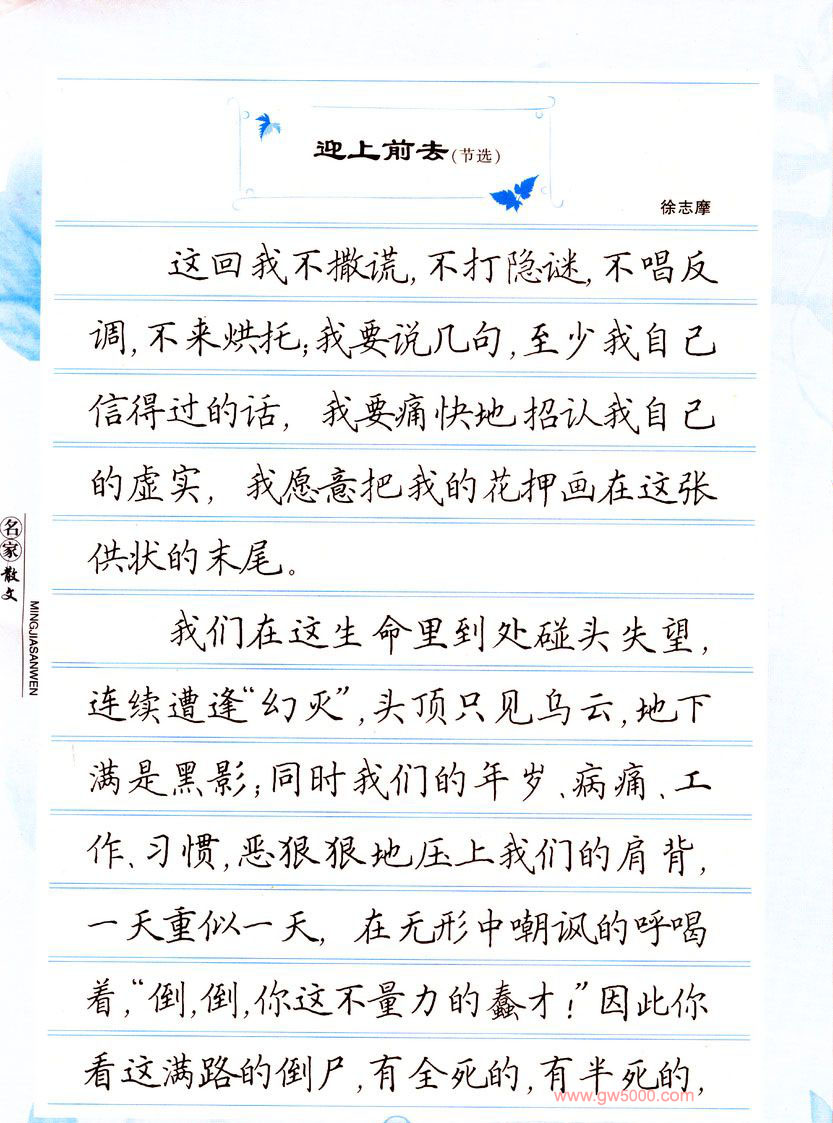 迎上前去(节选)
徐志摩
这回我不撒谎,不打隐谜,不唱反
调,不来烘托;我要说几句,至少我自己
信得过的话,我要痛快地招认我自己
的虚实,我愿意把我的花押画在这张
供状的末尾。
我们在这生命里到处碰头失望,
连续遭逢“幻灭”,头顶只见乌云,地下
满是黑影;同时我们的年岁、病痛、工
作、习惯,恶狠狠地压上我们的肩背,
一天重似一天,在无形中嘲讽的呼喝
着,“倒,倒,你这不量力的蠢才!”因此你
看这满路的倒尸,有全死的,有半死的,
名家散文
MINGJIASANWEN
www.gw5000.com